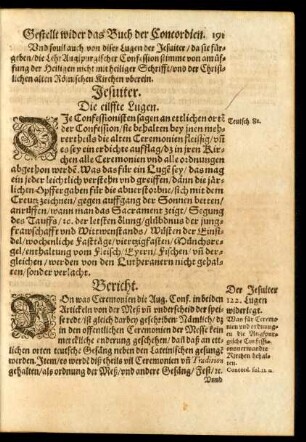 Gestelt wider das Buch der Concordien. 191
Vnd souil auch von diser Lugen der Jesuiter / da sie für-
geben / die Lehr Augspurgischer Confession stimme von anrüf-
fung der Heiligen nicht mit heiliger Schrifft / vnd der Christ-
lichen alten Römischen Kirchen vberein.
Jesuiter.
Die eilffte Lugen.
DJe Confessionisten sagen an ettlichen orten
der Confession / sie behalten bey jnen meh-
rertheils die alten Ceremonien fleissig / vnd
es sey ein erdichte aufflag / dz in jren Kir-
chen alle Ceremonien vnd alle ordnungen
abgethon werden. Was das für ein Lugē sey / das mag
ein jeder leichtlich verstehn vnd greiffen / dann die jär-
lichen Opffergaben für die abuerstorbne / sich mit dem
Creutz zeichnen / gegen auffgang der Sonnen betten /
anrüffen / wann man das Sacrament zeigt / Segung
des Tauffs / etc. der letsten ölung / glübdnus der jung-
frawschafft vnd Wittwenstands / Wüsten der Einsi-
del / wochenliche Fasttäge / viertzigfasten / Münchsre-
gel / enthaltung vom Fleisch / Eyern / Fischen / vñ der-
gleichen / werden von den Lutheranern nicht gehal-
ten / sonder verlacht.
Teutsch
Bericht.
VOn was Ceremonien die Aug. Conf. in beiden
Artickeln von der Meß vñ vnderscheid der spei-
se rede / ist gleich darbey geschriben: Nämlich / dz
in den offentlichen Ceremonien der Messe kein
merckliche enderung geschehen / dañ daß an ett-
lichen orten teutsche Gesäng neben den Lateinischen gesungē
werden. Item / es werdē diß theils vil Ceremonien vñ Tradition
gehalten / als ordnung der Meß / vnd andere Gesäng / Fest / etc.
Vnnd
Der Jesuiter
122. Lugen
widerlegt.
Was für Ceremo-
nien vnd ordnun-
gen die Augspur-
gische Confessi-
onsverwandte
Kirchen behal-
ten.